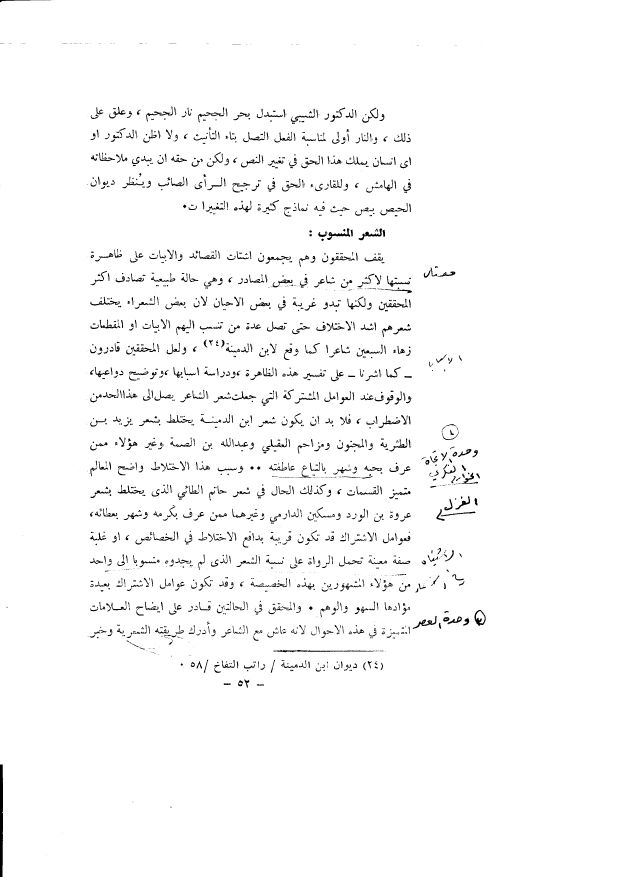 ولكن الدكتور الشيبي استبدل بحر الجحيم نار الجحيم ، وعلق على
ذلك ، والنار أولى لمناسبة الفعل التصل بتاء التأنيث ، ولا اظن الدكتور او
اى انسان يملك هذا الحق في تغيير النص ، ولكن من حقه ان يبدي ملاحظاته
في الهامش ، وللقارىء الحق في ترجيح الرأى الصائب ويُنظر ديوان
الحيص بيص حيث فيه نماذج كثيرة لهذه التغييرات ٠
الشعر المنسوب :
يقف المحققون وهم يجمعون اشتات القصائد والابيات على ظاهرة
نسبتها لاكثر من شاعر في بعض المصادر ، وهي حالة طبيعية تصادف اكثر
المحققين ولكنها تبدو غريبة في بعض الاحيان لان بعض الشعراء يختلف
شعرهم اشد الاختلاف حتى تصل عدة من تنسب اليهم الابيات او المقطعات
زهاء السبعين شاعرا كما وقع لابن الدمينة(٢٤) ، ولعل المحققين قادرون
ـ كما اشرنا ـ على تفسير هذه الظاهرة ،ودراسة اسبابها ،وتوضيح دواعيها،
والوقوف عند العوامل المشتركة التي جعلت شعر الشاعر يصل الى هذا الحد من
الاضطراب ، فلا بد ان يكون شعر ابن الدمينة يختلط بشعر يزيد بن
الطثرية والمجنون ومزاحم العقيلي وعبدالله بن الصمة وغير هؤلاء ممن
عرف بحبه وشهر بالتياع عاطفته ٠٠ وسبب هذا الاختلاط واضح المعالم
متميز القسمات ، وكذلك الحال في شعر حاتم الطائي الذى يختلط بشعر
عروة بن الورد ومسكين الدارمي وغيرهما ممن عرف بكرمه وشهر بعطائه،
فعوامل الاشتراك قد تكون قريبة بدافع الاختلاط في الخصائص ، او غلبة
صفة معينة تحمل الرواة على نسبة الشعر الذى لم يجدوه منسوبا الى واحد
من هؤلاء المشهورين بهذه الخصيصة ، وقد تكون عوامل الاشتراك بعيدة
مؤداها السهو والوهم ٠ والمحقق في الحالتين قادر على ايضاح العلامات
المميزة في هذه الاحوال لانه عاش مع الشاعر وأدرك طريقته الشعرية وخبر
(٢٤) ديوان ابن الدمينة / راتب النفاخ /٥٨ ٠
ـ ٥٢ ـ
الاسباب
الغزل
وحدة العصر